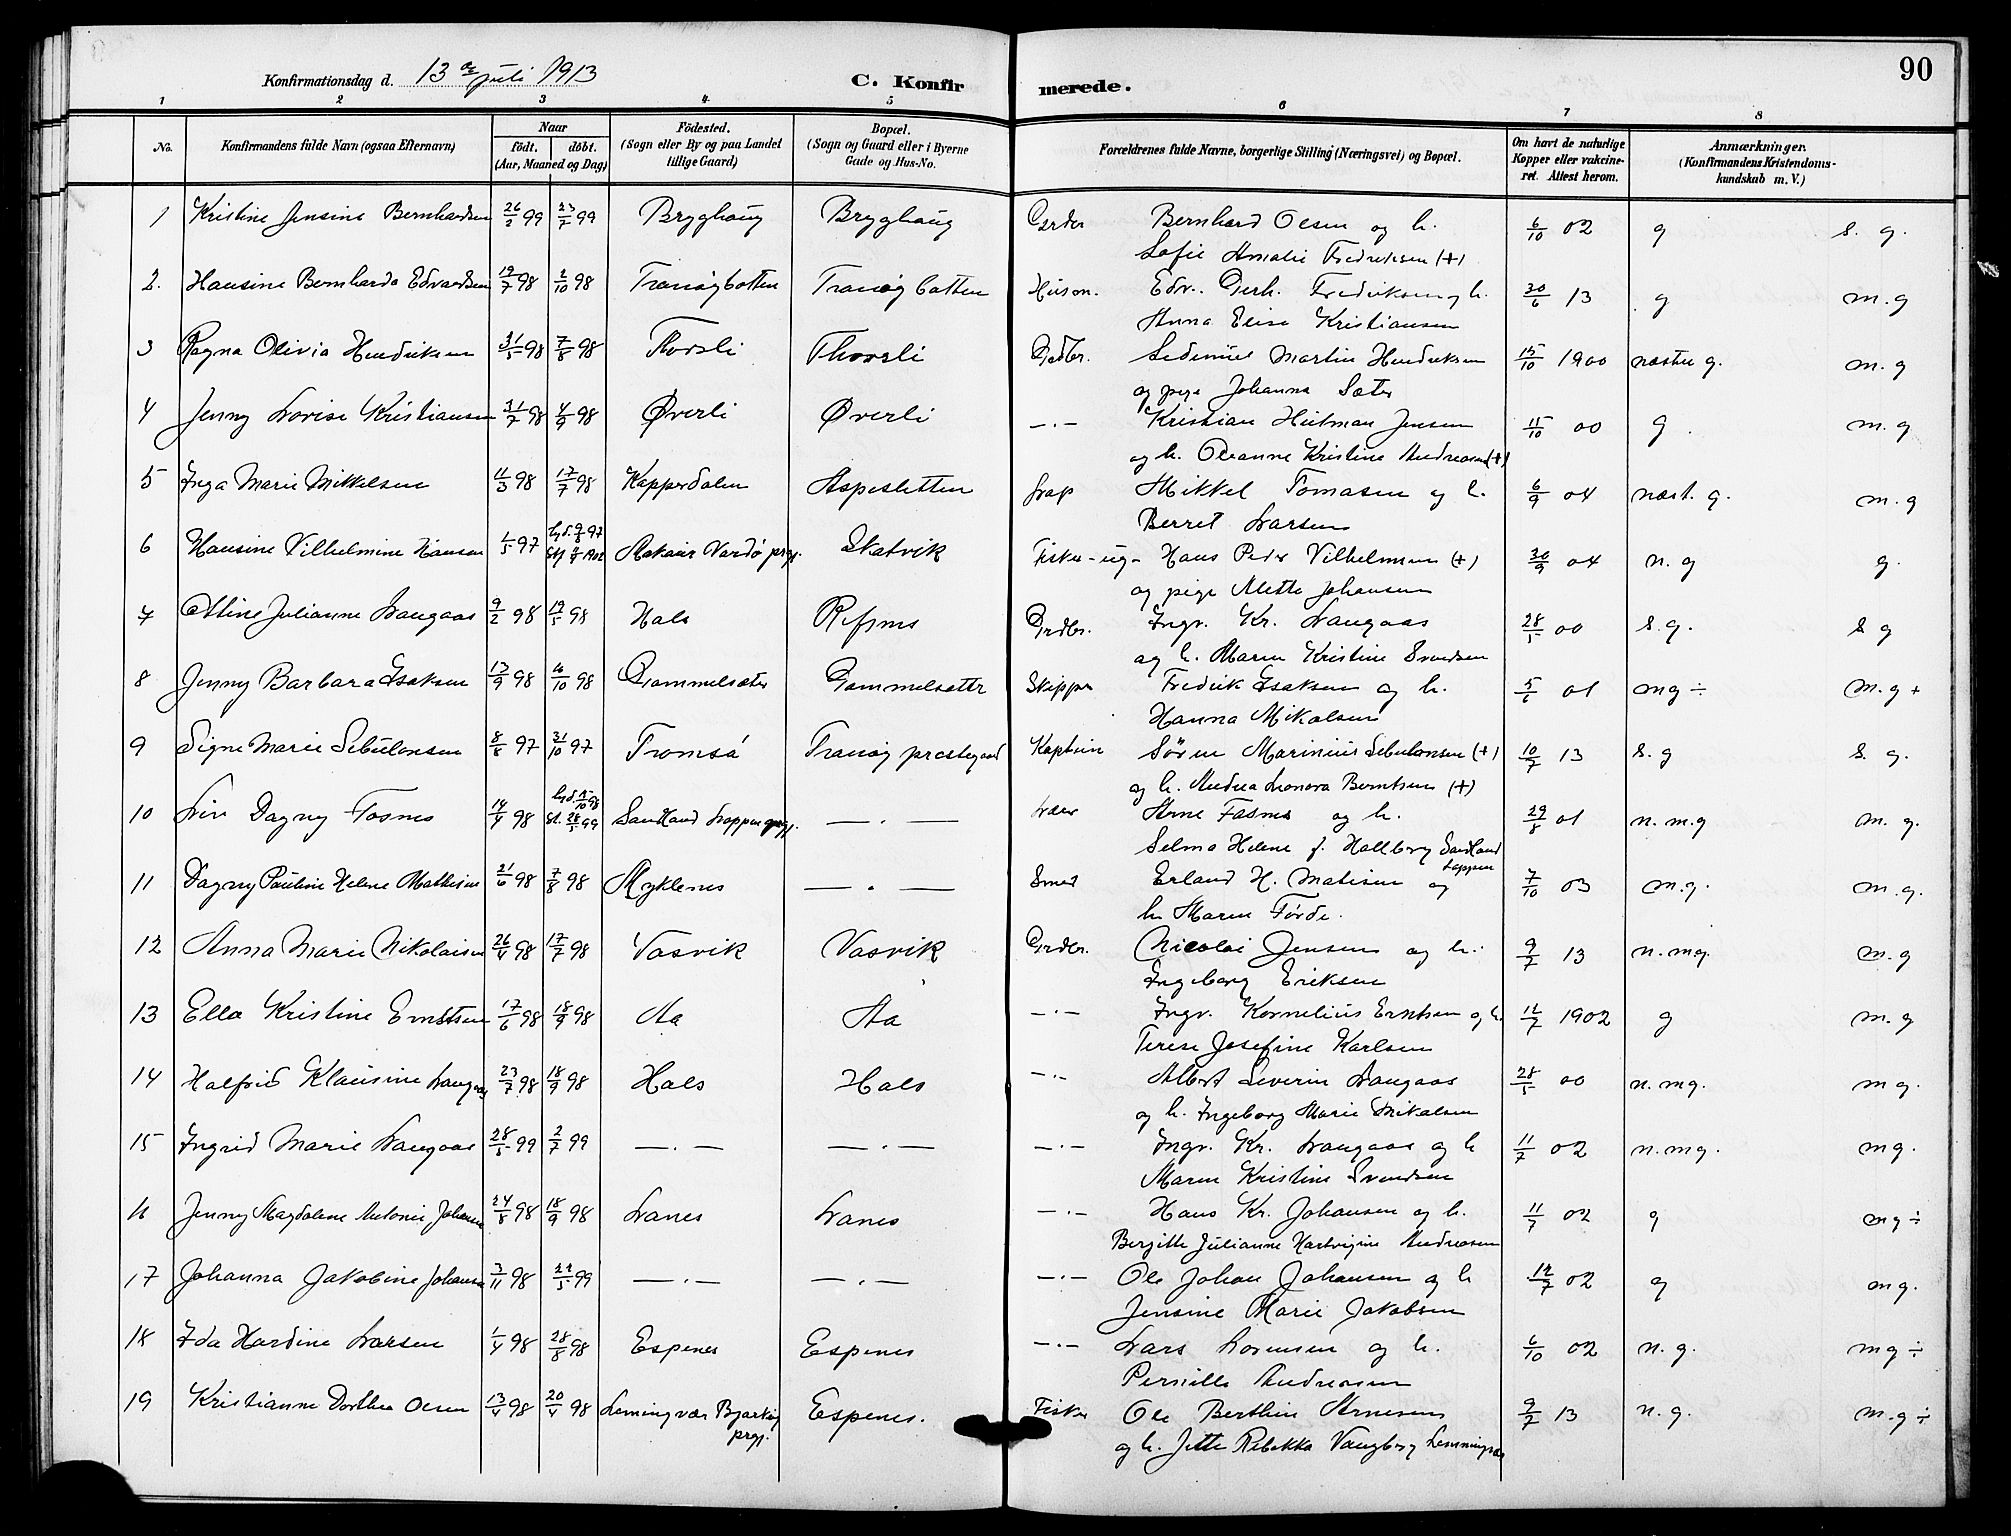 90
Konfirmationsdag d. 13de juli 1913 C. Konfirmerede.
1 2 3 4 5 6 7 8
No. Konfirmandens fulde Navn (ogsaa Efternavn) Naar födt. döbt. (Aar, Maaned og Dag) Födested. (Sogn eller By og paa Landet tillige Gaard) Bopæl. (Sogn og Gaard eller i Byerne Gade og Hus-No. Forældrenes fulde Navne, borgerlige Stilling (Næringsvei) og Bopæl. Om havt de naturlige Kopper eller vakcineret. Attest herom. Anmærkninger. (Konfirmandens Kristendomskundskab m. V.)
1 Kristine Jensine Bernhardsen 26/2 99 23/7 99 Brygghaug Brygghaug Bernhard Olsen og h. 6/10 02 g s. g.
Sofie Amalie Fredriksen (+)
2. Hansine Bernharda Edvardsen 19/7 98 2/10 98 Tranøybotten Tranøy botten Husm. Edv. Gerh. Fredriksen og h. 30/6 13 g m. g
Anna Elise Kristiansen
3 Ragna Olivia Hendriksen 31/5 98 7/8 98 Thorsli Thorsli Grdbr. Sedenius Martin Hendriksen 15/10 1900 næsten g. m. g
og pige Johanna Sæter
4 Jenny Lovise Kristiansen 31/7 98 4/9 98 Øverli Øverli —·— Kristian Hutman Jensen 15/10 00 g. m. g
og h. Oleanne Kristine Andreasen (+)
5 Inga Marie Mikkelsen 11/3 98 17/7 98 Kapperdalen Aspesletten Lap Mikkel Tomasen og h. 6/9 04 næst. g. m. g
Berret Larsen
6 Hansine Vilhelmine Hansen 1/5 97 Makaur Vardø prgj. Skatvik Fisker - ug - Hans Peder Vilhelmsen (+) 30/9 04 n. g g.
og pige Mette Johansen
7 Stine Julianne Langaas 9/2 98 19/5 98 Hals Refsnes Grdbr. Ingv. Kr. Langaas 28/5 00 s. g. s g
og h. Maren Kristine Svendsen
8 Jenny Barbara Isaksen 13/9 98 16/10 98 Gammelsæter Gammelsætter Skipper Fredrik Isaksen og h. 5/6 01 mg ÷ m. g +
Hanna Mikalsen
9 Signe Marie Sebulonsen 8/8 97 31/10 97 Tromsø Tranøy prestegaard Kaptein Søren Marinius Sebulonsen (+) 10/7 13 s. g s. g.
og h. Andrea Leonora Berntsen (+)
10 Liv Dagny Fosnes 14/4 98 Sandland Loppen prgj. —·— Lærer Arne Fosnes og h. 29/8 01 n. m. g m. g.
Selma Helene f. Hallberg Sandland Loppen
11 Dagny Pauline Helene Mathisen 21/6 98 7/8 98 Myklenes —·— Smed Erland H. Matisen og 7/10 03 m. g. m. g.
h. Maren Førde.
12 Anna Marie Nikolaisen 26/4 98 17/7 98 Vasvik Vasvik Grdbr. Nicolai Jensen og h. 9/7 13 n. mg. m. g
Ingeborg Eriksen
13 Ella Kristine Ernstsen 17/6 98 18/9 98 Aa Aa —·— Ingv. Kornelius Erntsen og h. 12/7 1902 g m. g
Terese Josefine Karlsen
14 Halfrid Klausine Langaas 23/7 98 18/9 98 Hals Hals —·— Albert Severin Langaas 28/5 00 n. m g. m g.
og h. Ingeborg Marie Mikalsen
15 Ingrid Marie Langaas 28/5 99 2/7 99 —·— —·— —·— Ingv. Kr. Langaas og h 11/7 02 n. mg. mg.
Maren Kristine Svendsen
16 Jenny Magdalene Antonie Johansen 24/8 98 18/9 98 Lanes Lanes —·— Hans Kr. Johansen og h. 11/7 02 g mg ÷
Bergitte Julianne Hartvigine Andreasen
17 Johanna Jakobine Johansen 3/11 98 22/5 99 —·— —·— —·— Ole Johan Johansen og h 12/7 02 g mg.
Jensine Marie Jakobsen
18 Ida Hardine Larsen 1/4 98 28/8 98 Espenes Espenes —·— Lars Lorensen og h. 6/10 02 n. g. mg ÷
Pernille Andreasen
19 Kristianne Dorthea Olsen 13/4 98 20/4 98 Lemingvær Bjarkøy prgj. Espenes. Fisker Ole Berthin Arnesen 9/7 13 n. g. m. g ÷
og h. Jette Rebekka Vangberg Lemmingvær